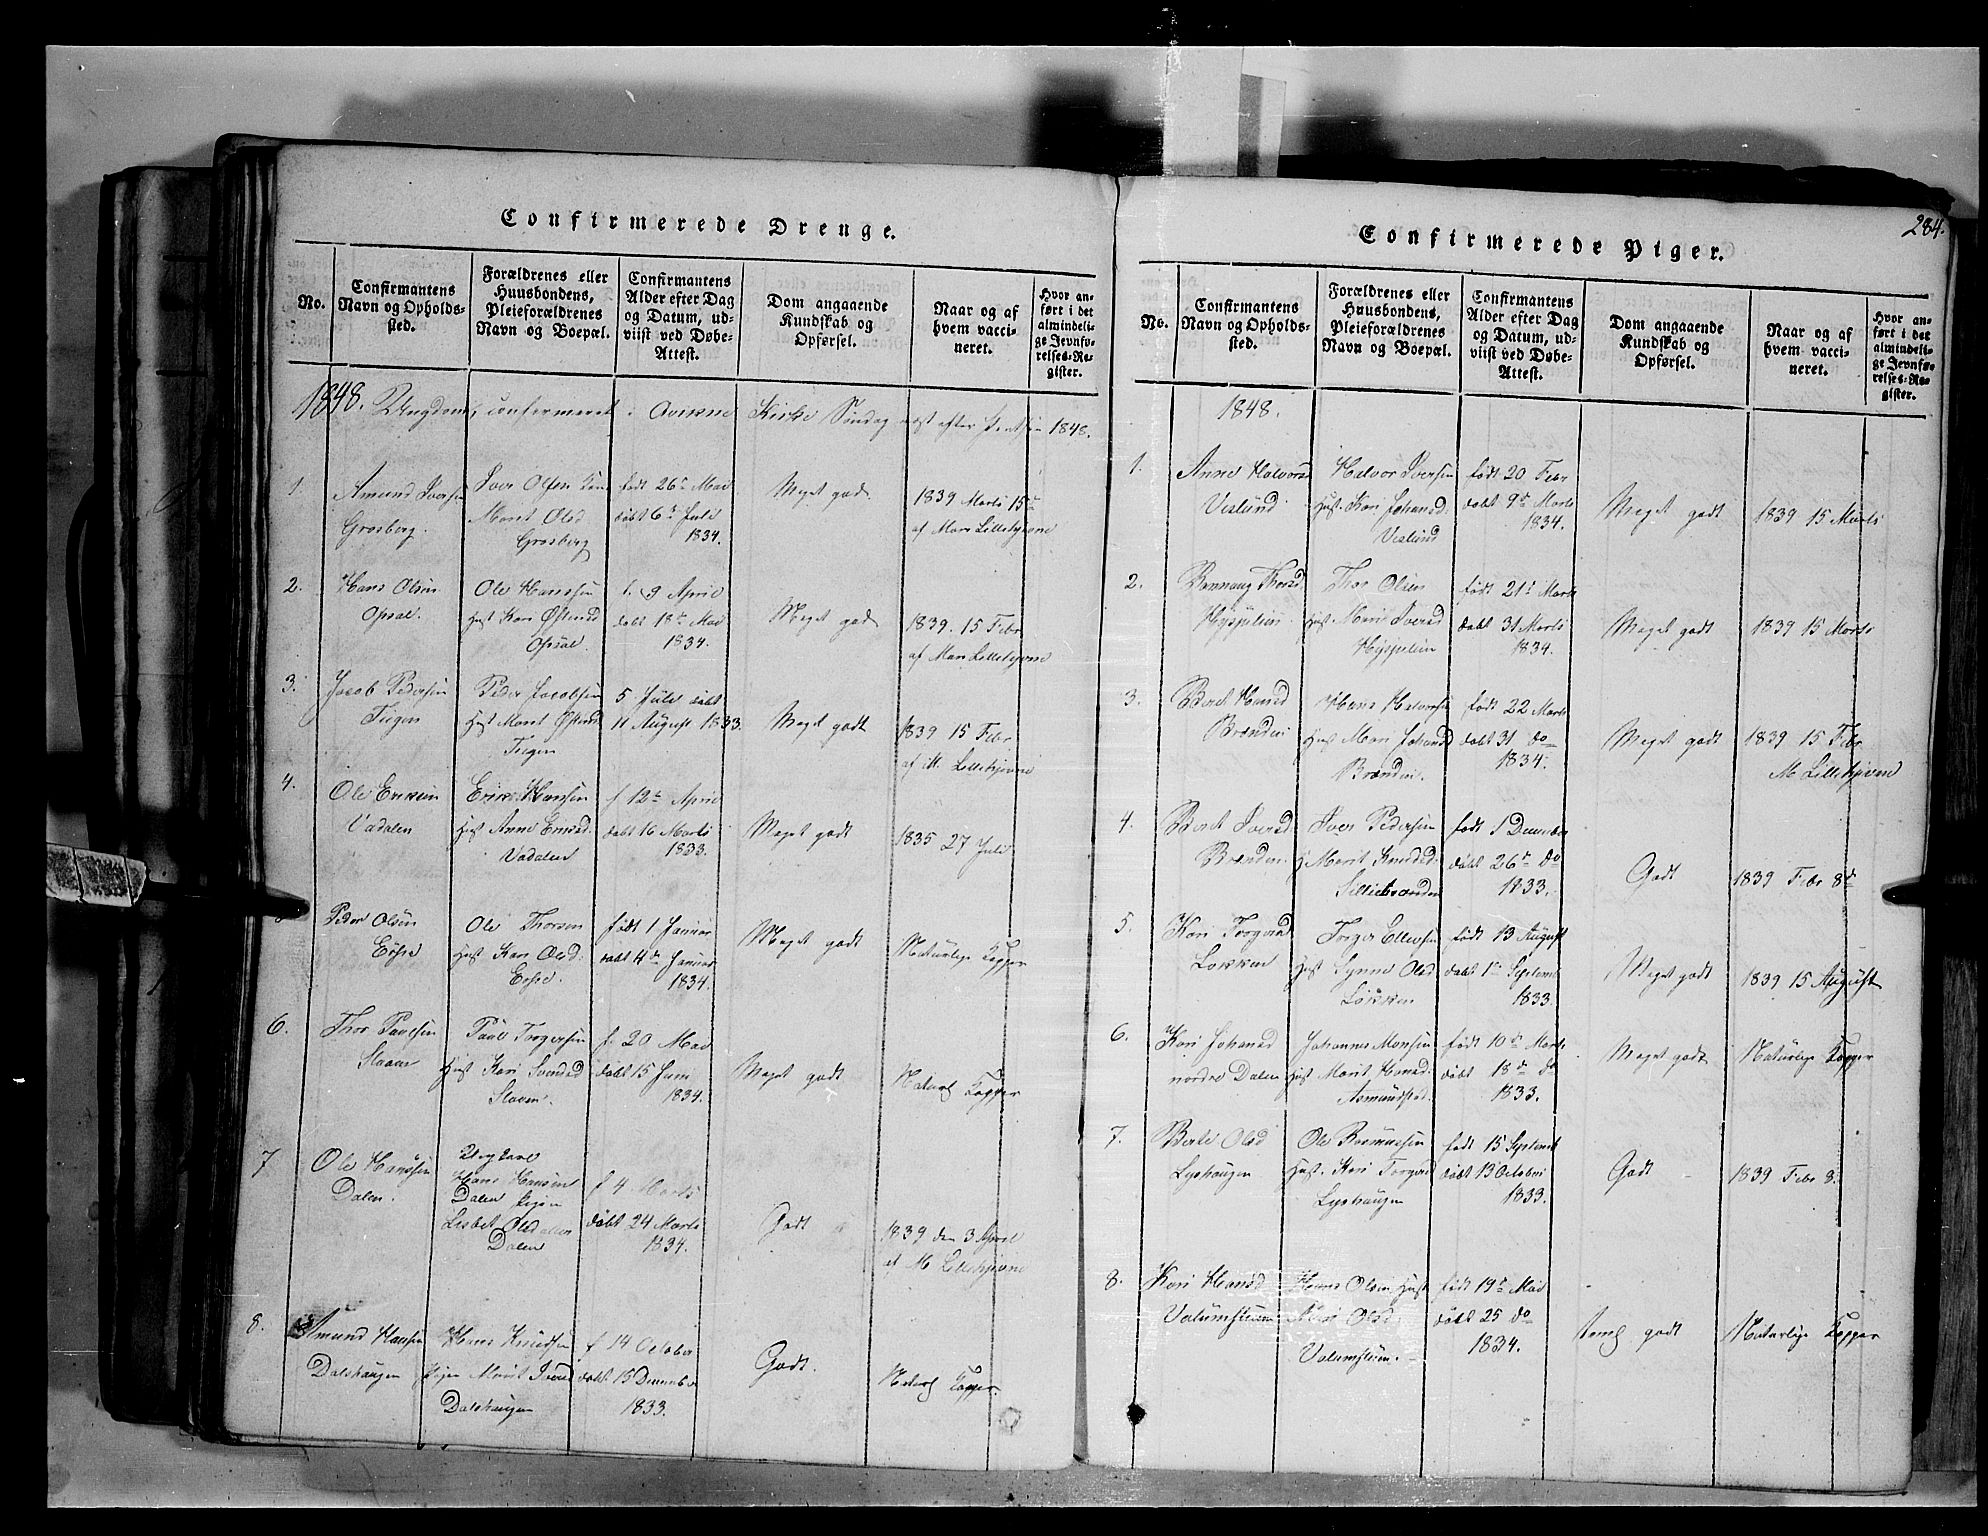 284.
Confirmerede Drenge.
No.
Confirmantens
Navn og Opholds-
sted.
Forældrenes eller
Huusbondens,
Pleieforældrenes
Navn og Boepæl.
Confirmantens
Alder efter Dag
og Datum, ud-
viist ved Døbe-
Attest.
Dom angaaende
Kundskab og
Opførsel.
Naar og af
hvem vacci-
neret.
Hvor an-
ført i det
almindeli-
ge Jevnfø-
relses-Re-
gister.
1848. Ungdom, confirmeret i Kirke Søndag næst efter 1848.
1
Amund Iversen
Grosberg.
Iver Olsen
Marit Olsd
Grosberg
født 26de Mai
døbt 6te Juli
1834.
Meget godt
1839 Marts 15de
af Mari Lillehjevne
2.
Hans Olsen
Opsal.
Ole Hanssen
Hust Kari
Opsal
f. 9 April
døbt 18de Mai
1834.
Meget godt
1839. 15 Febr
af Mari Lillehjevne
3.
Jacob Pedersen
Tiigen
Peder Jacobsen
Hust Marit
Tiigen
5 Juli døbt
11 August 1833.
Meget godt
1839 15 Febr
af M. Lillehjevne
4.
Ole Eriksen
Vadalen
Erik Hansen
Hust Anne
Vadalen
f 12te April
døbt 16 Marts
1833.
Meget godt
1835 27 Juli
Peder Olsen
Ole Thorsen
Hust Kari Olsd.
født 1 Januar
døbt 4de Januar
1834.
Meget godt
Naturlige Kopper
6.
Thor Paulsen
Slaaen
Paul Torgersen
Hust Kari Svensd
Slaaen.
f. 20 Mai
døbt 15 Juni
1834.
Meget godt
Naturl Kopper
7
Ole Hanssen
Dalen.
Ungkarl
Hans Hansen
Dalen Pigen
Lisbet Olsd
Dalen
f 4 Marts
døbt 24 Marts
1834.
Godt
1839 den 3 April
af M Lillehjevne
8.
Amund Hansen
Dalshaugen
Hans Knudsen
Pigen Marit Iversd
Dalshaugen
f 14 October
døbt 15 December
1833.
Godt.
Naturl Kopper.
Confirmerede Piger.
No.
Confirmantens
Navn og Opholds-
sted.
Forældrenes eller
Huusbondens,
Pleieforældrenes
Navn og Boepæl.
Confirmantens
Alder efter Dag
og Datum, ud-
viist ved Døbe-
Attest.
Dom angaaende
Kundskab og
Opførsel.
Naar og af
hvem vacci-
neret.
Hvor an-
ført i det
almindeli-
ge Jevnfø-
relses-Re-
gister.
1848.
1.
Anne Halvorsd
Veslund
Halvor Iversen
Hust. Kari Johansd.
Veslund
født 20 Febr
døbt 9de Marts
1834.
Meget godt
1839 15 Marts
2.
Rønnaug Thorsd
Hysjulien
Thor Olsen
Hust Mari Iversd
Hysjulien
født 21de Marts
døbt 31 Marts
1834.
Meget godt
1839 15 Marts
3.
Beret Hansd
Brænden
Hans Halvorsen
Hust Mari Johansd
Brænden.
født 22 Marts
døbt 31 do
1834.
Meget godt
1839 15 Febr
M Lillehjevne
4.
Beret Iversd
Brænden.
Iver Pedersen
H Marit Knudsd.
Lillebrænden
født 1 December
døbt 26de do
1833.
Godt
1839 Febr 8de
5.
Kari Torgersd
Løkken
Torger Ellevsen
Hust Synne Olsd
Løkken
født 13 August
døbt 1te Septemb
1833.
Meget godt
1839 15 August
6.
Kari Johansd
nordre Dalen
Johannes Monsen
Hust Marit Hansd.
Asmundstad.
født 10de Marts
døbt 18de do
1833.
Meget godt
Naturlige Kopper
7.
Berte Olsd
Lyshaugen
Ole Rasmussen
Hust. Kari Torgersd
Lyshaugen
født 15 Septemb
døbt 13 Octobr
1833.
Godt
1839 Febr 8.
8.
Kari Hansd
Valumsteien
Hans Olsen Hust
Kari Olsd.
Valumsteien.
født 19de Mai
døbt 25 do
1834.
teml godt
Naturlige Kopper